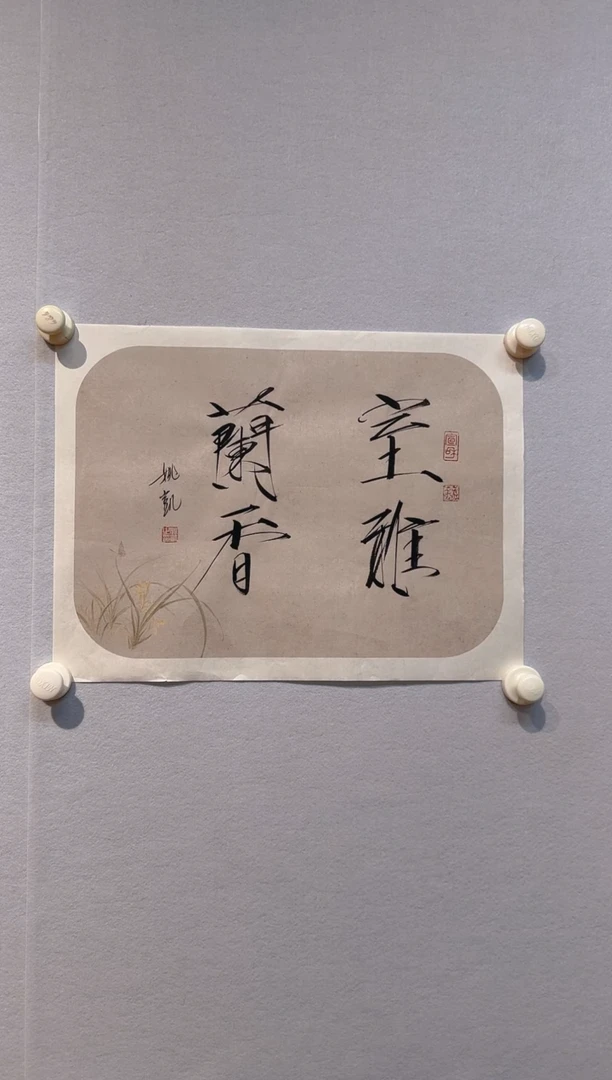 室雅
蘭香
姚凱